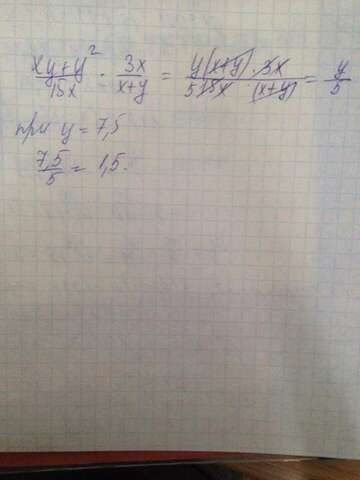 (xy+y²)/15x · 3x/(x+y) = y(x+y)·3x/(5 15x·(x+y)) = y/5
при y = 7,5
7,5/5 = 1,5.